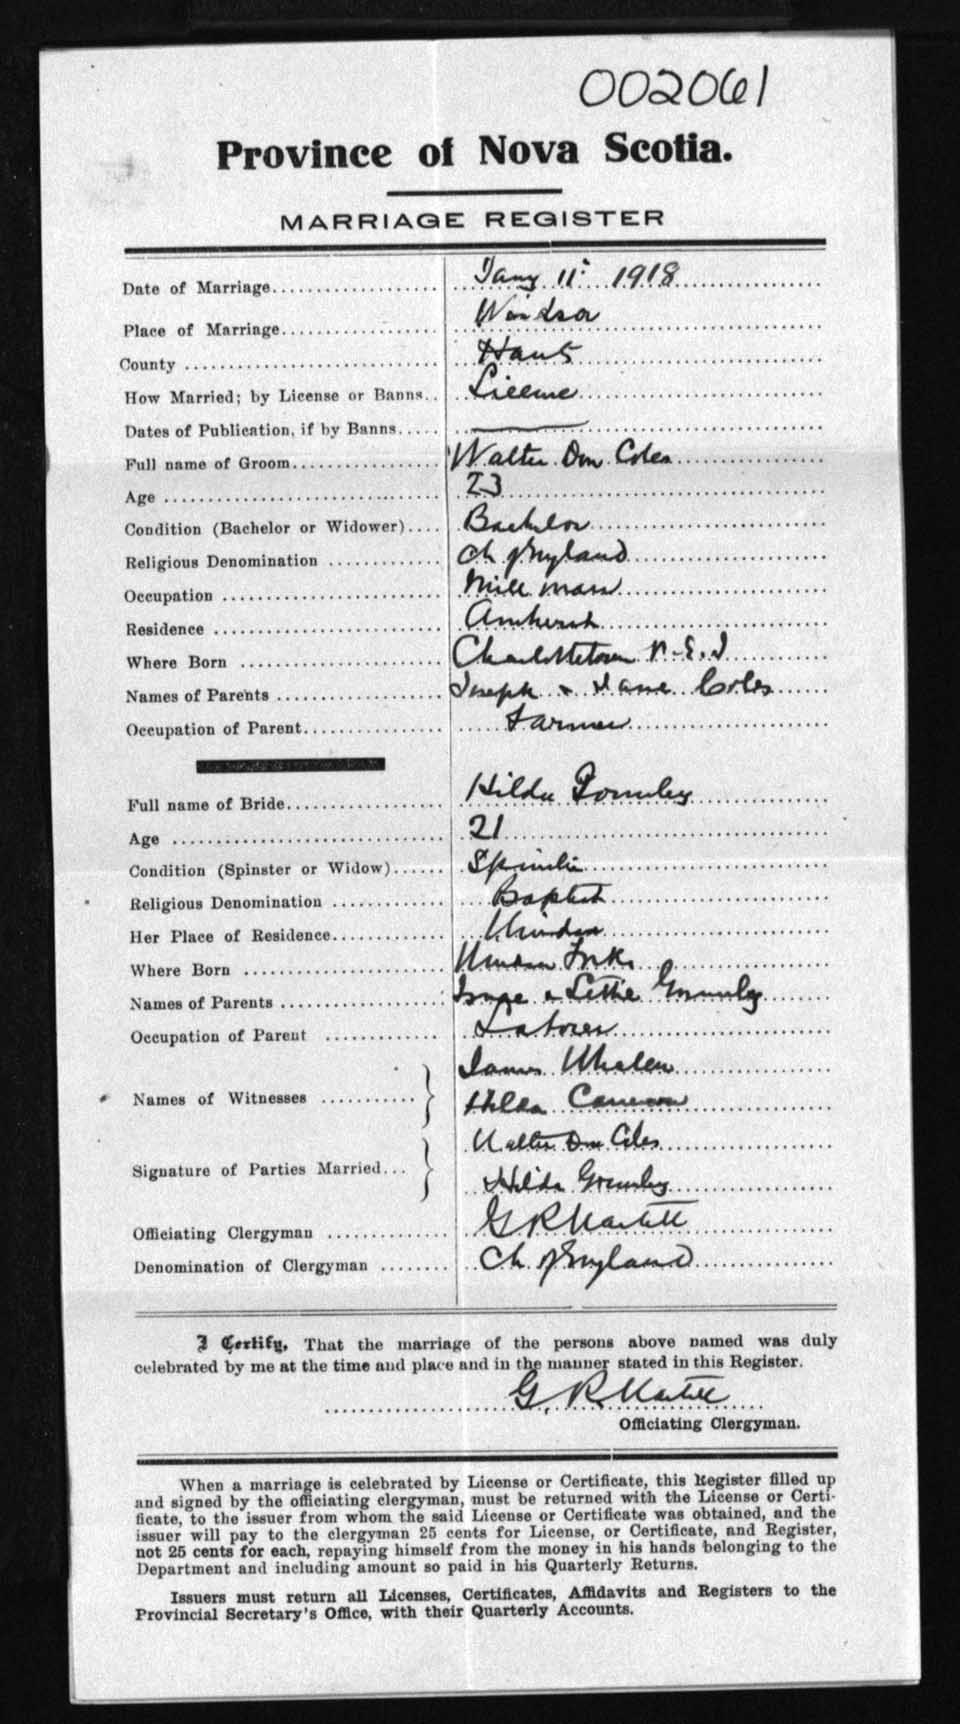 002061
Province of Nova Scotia.
MARRIAGE REGISTER
Date of Marriage Jany 11th 1918
Place of Marriage Windsor
County Hants
How Married; by License or Banns.. License
Dates of Publication, if by Banns.....
Full name of Groom Walter Don Coles
Age 23
Condition (Bachelor or Widower).... Bachelor
Religious Denomination Ch of England
Occupation Mill man
Residence Amherst
Where Born Charlottetown P.E.I
Names of Parents Joseph & Jane Coles
Occupation of Parent Farmer
Full name of Bride Hilda Gormley
Age 21
Condition (Spinster or Widow)...... Spinster
Religious Denomination Baptist
Her Place of Residence Windsor
Where Born Windsor Forks
Names of Parents & Lettie Gormley
Occupation of Parent Laborer
James Whalen
Names of Witnesses
Hilda Cameron
Walter Don Coles
Signature of Parties Married...
Hilda Gormley
Officiating Clergyman G R Martell
Denomination of Clergyman Ch. of England
I Certify, That the marriage of the persons above named was duly
celebrated by me at the time and place and in the manner stated in this Register.
G. R. Martell
Officiating Clergyman.
When a marriage is celebrated by License or Certificate, this Register filled up
and signed by the officiating clergyman, must be returned with the License or Certi-
ficate, to the issuer from whom the said License or Certificate was obtained, and the
issuer will pay to the clergyman 25 cents for License, or Certificate, and Register,
not 25 cents for each, repaying himself from the money in his hands belonging to the
Department and including amount so paid in his Quarterly Returns.
Issuers must return all Licenses, Certificates, Affidavits and Registers to the
Provincial Secretary's Office, with their Quarterly Accounts.